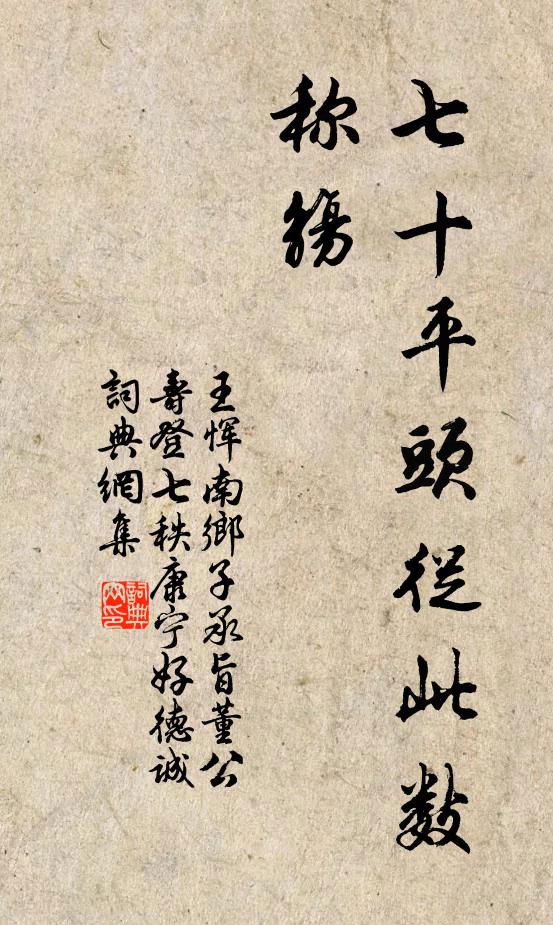 七十平頭從此數
称觴
王恽南鄉子承旨董公
壽登七秩康宁好德誠
詞典網集
詞典
网印